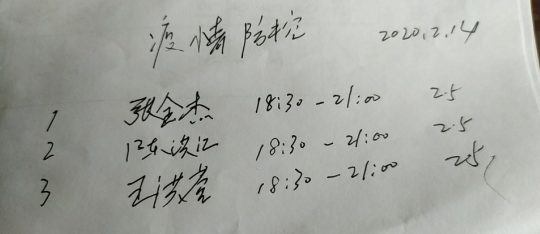 疫情防控 2020.2.14
1 张全杰 18:30-21:00 2.5
2 陈洪江 18:30-21:00 2.5
3 王洪堂 18:30-21:00 2.5